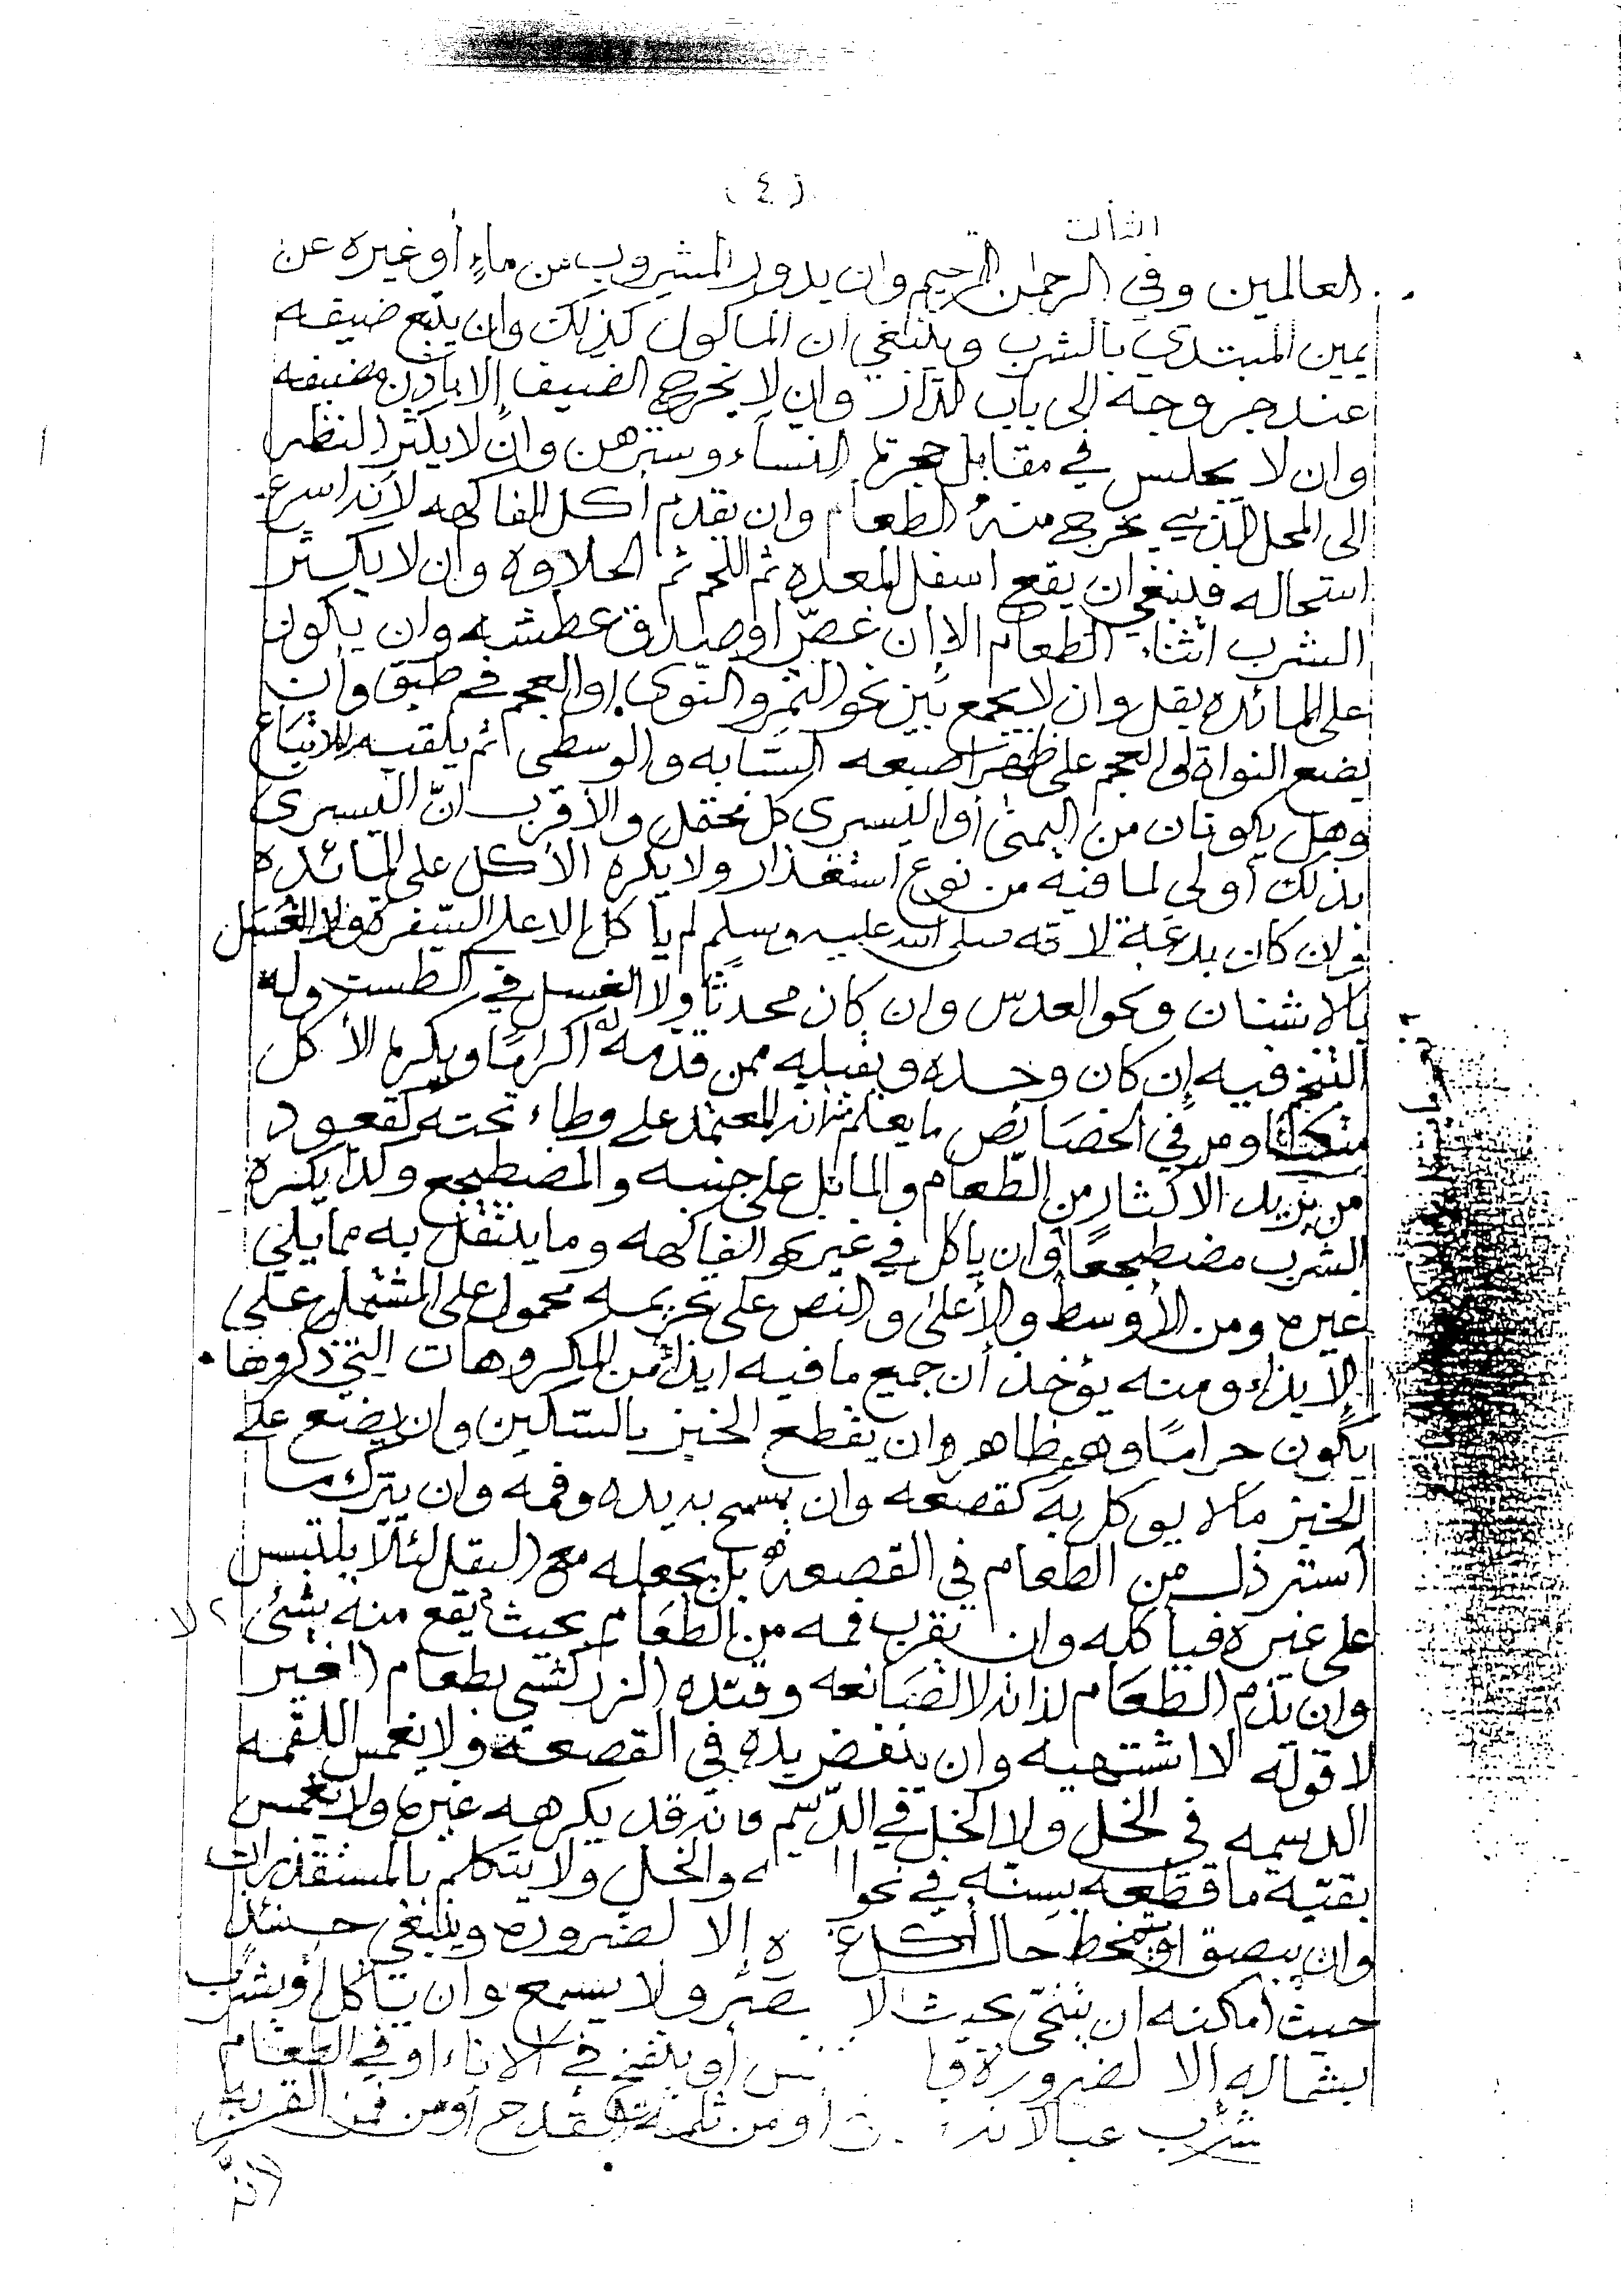 (٤)
الثالث
العالمين وفي الرحمن الرحيم وان يدور المشروب من ماءٍ أو غيره عن
يمين المبتدي بالشرب وينبغي ان المأكول كذلك وان يتبع ضيفه
عند خروجه إلى باب الدار وان لا يخرج الضيف إلا باذن مضيفه
وان لا يجلس في مقابل حجرة النساء وسترهن وان لا يكثر النظر
الى المحل الذي يخرج منه الطعام وان يقدم أكل الفاكهه لأنه اسرع
استحاله فينبغي ان يقع اسفل المعده ثم اللحم ثم الحلاوه وان لا يكثر
الشرب اثناء الطعام الا ان غصّ او صدق عطشه وان يكون
على المائده بقل وان لا يجمع بين نحو التمر والنوى او العجم في طبق وان
يضع النواة او العجم على ظهر اصبعه السبابه والوسطى ثم يلقيه للاتباع
وهل يكونان من اليمنى أو اليسرى كل محتمل والأقرب انّ اليسرى
بذلك أولى لما فيه من نوع استقذار ولا يكره الأكل على المائده
وان كان بدعة لانه صلى الله عليه وسلم لم يأكل إلا على السفرة ولا الغسل
بالاشنان ونحو العدس وان كان محدثًا ولا الغسل في الطست وله
التنخم فيه إن كان وحده ويقبله ممن قدمه له اكرامًا ويكره الأكل
متكئًا ومر في الخصائص ما يعلم منه انه المعتمد على وطاء تحته كقعود
من يريد الاكثار من الطعام والمائل على جنبه والمضطجع وكذا يكره
الشرب مضطجعًا وان يأكل في غير نحو الفاكهه وما يتنقل به مما يلي
غيره ومن الأوسط والأعلى والنص على تحريمه محمول على المشتمل على
الإيذاء ومنه يؤخذ أن جميع ما فيه ايذاء من المكروهات التي ذكروها
يكون حرامًا وهو ظاهر وان يقطع الخبز بالسكين وان يضع على
الخبز ما لا يوكل به كقصعه وان يمسح به يده وفمه وان يترك ما
استرذل من الطعام في القصعة بل يجعله مع البقل لئلا يلتبس
على غيره فيأكله وان يقرب فمه من الطعام بحيث يقع منه بشيء لا
وان يذم الطعام لذاته لا لصانعه وقيده الزركشي بطعام الغير
لا قوله لا اشتهيه وان ينفض يده في القصعة ولا يغمس اللقمه
الدسمه في الخل ولا الخل في الدسم فانه قد يكرهه غيره ولا يغمس
بقيّة ما قطعه بسنه في نحو ه والخل ولا يتكلم بالمستقذرات
وان يبصق او يتمخط حال أكل ه إلا لضرورة وينبغي حينئذ
حيث أمكنه ان يتنحّى بحيث لا يبصر ولا يسمع وان يأكل أو يشرب
بشماله إلا لضرورة أو ينفخ في الاناء او في الطعام
أو من ثلمة القدح أو من فم القربه
لانه